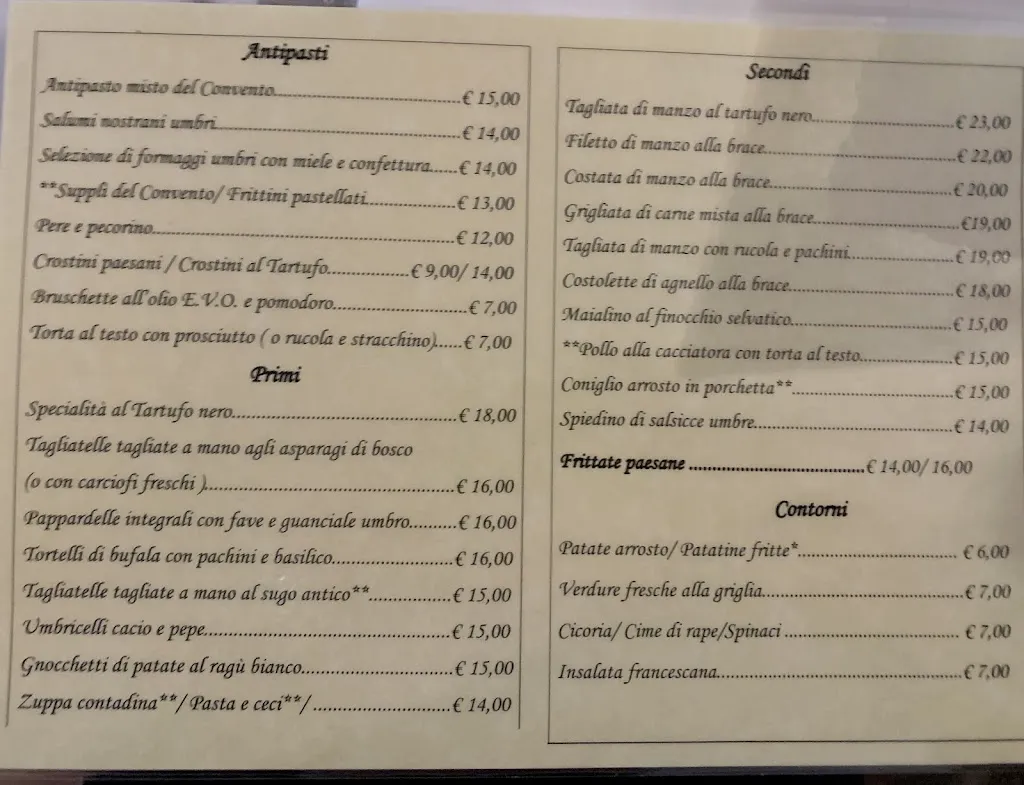 Antipasti
Antipasto misto del Convento..........................€ 15,00
Salumi nostrani umbri..................................€ 14,00
Selezione di formaggi umbri con miele e confettura......€ 14,00
**Supplì del Convento/ Frittini pastellati..............€ 13,00
Pere e pecorino.........................................€ 12,00
Crostini paesani / Crostini al Tartufo..............€ 9,00/ 14,00
Bruschette all'olio E.V.O. e pomodoro.......................€ 7,00
Torta al testo con prosciutto ( o rucola e stracchino)......€ 7,00
Primi
Specialità al Tartufo nero..............................€ 18,00
Tagliatelle tagliate a mano agli asparagi di bosco
(o con carciofi freschi )..............................€ 16,00
Pappardelle integrali con fave e guanciale umbro..........€ 16,00
Tortelli di bufala con pachini e basilico...............€ 16,00
Tagliatelle tagliate a mano al sugo antico**................€ 15,00
Umbricelli cacio e pepe.................................€ 15,00
Gnocchetti di patate al ragù bianco.....................€ 15,00
Zuppa contadina**/ Pasta e ceci**/ ...........................€ 14,00
Secondi
Tagliata di manzo al tartufo nero.......................€ 23,00
Filetto di manzo alla brace.............................€ 22,00
Costata di manzo alla brace.............................€ 20,00
Grigliata di carne mista alla brace.....................€19,00
Tagliata di manzo con rucola e pachini..................€ 19,00
Costolette di agnello alla brace........................€ 18,00
Maialino al finocchio selvatico.........................€ 15,00
**Pollo alla cacciatora con torta al testo................€ 15,00
Coniglio arrosto in porchetta**.........................€ 15,00
Spiedino di salsicce umbre..............................€ 14,00
Frittate paesane ........................................€ 14,00/ 16,00
Contorni
Patate arrosto/ Patatine fritte*............................. € 6,00
Verdure fresche alla griglia............................€ 7,00
Cicoria/ Cime di rape/Spinaci ............................... € 7,00
Insalata francescana....................................€ 7,00